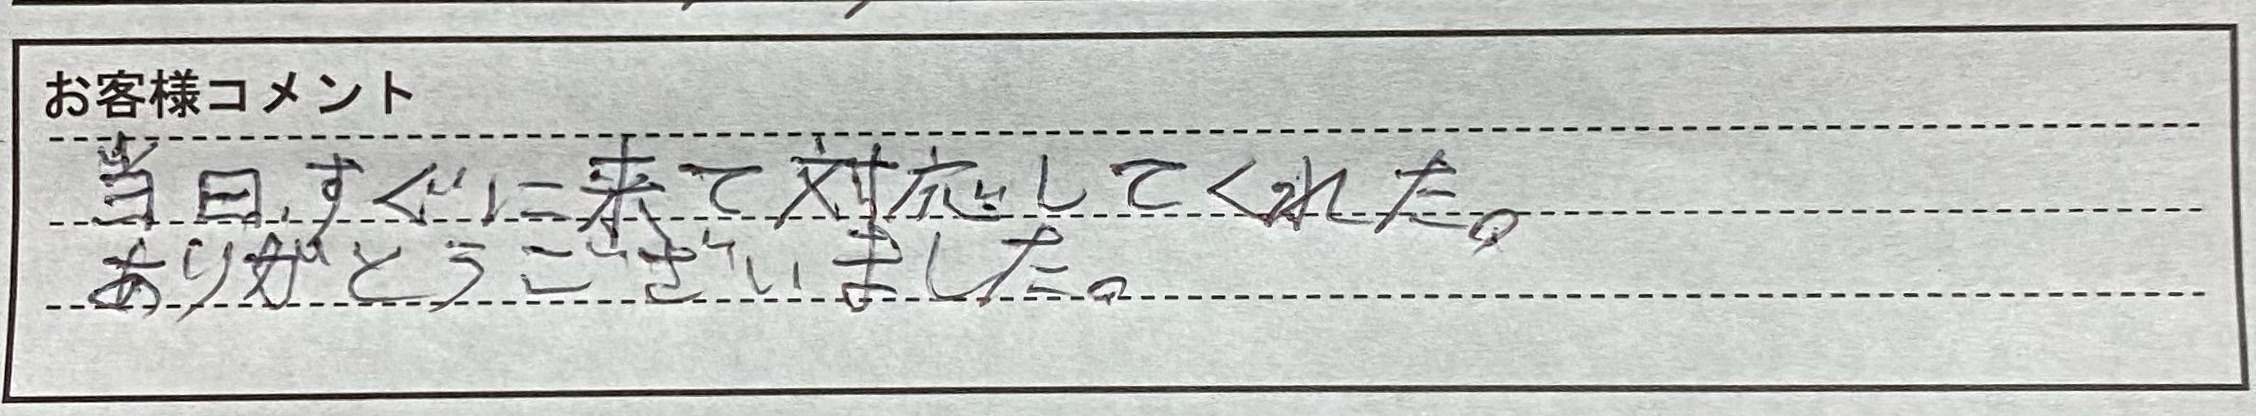 お客様コメント
当日、すぐに来て対応してくれた。
ありがとうございました。